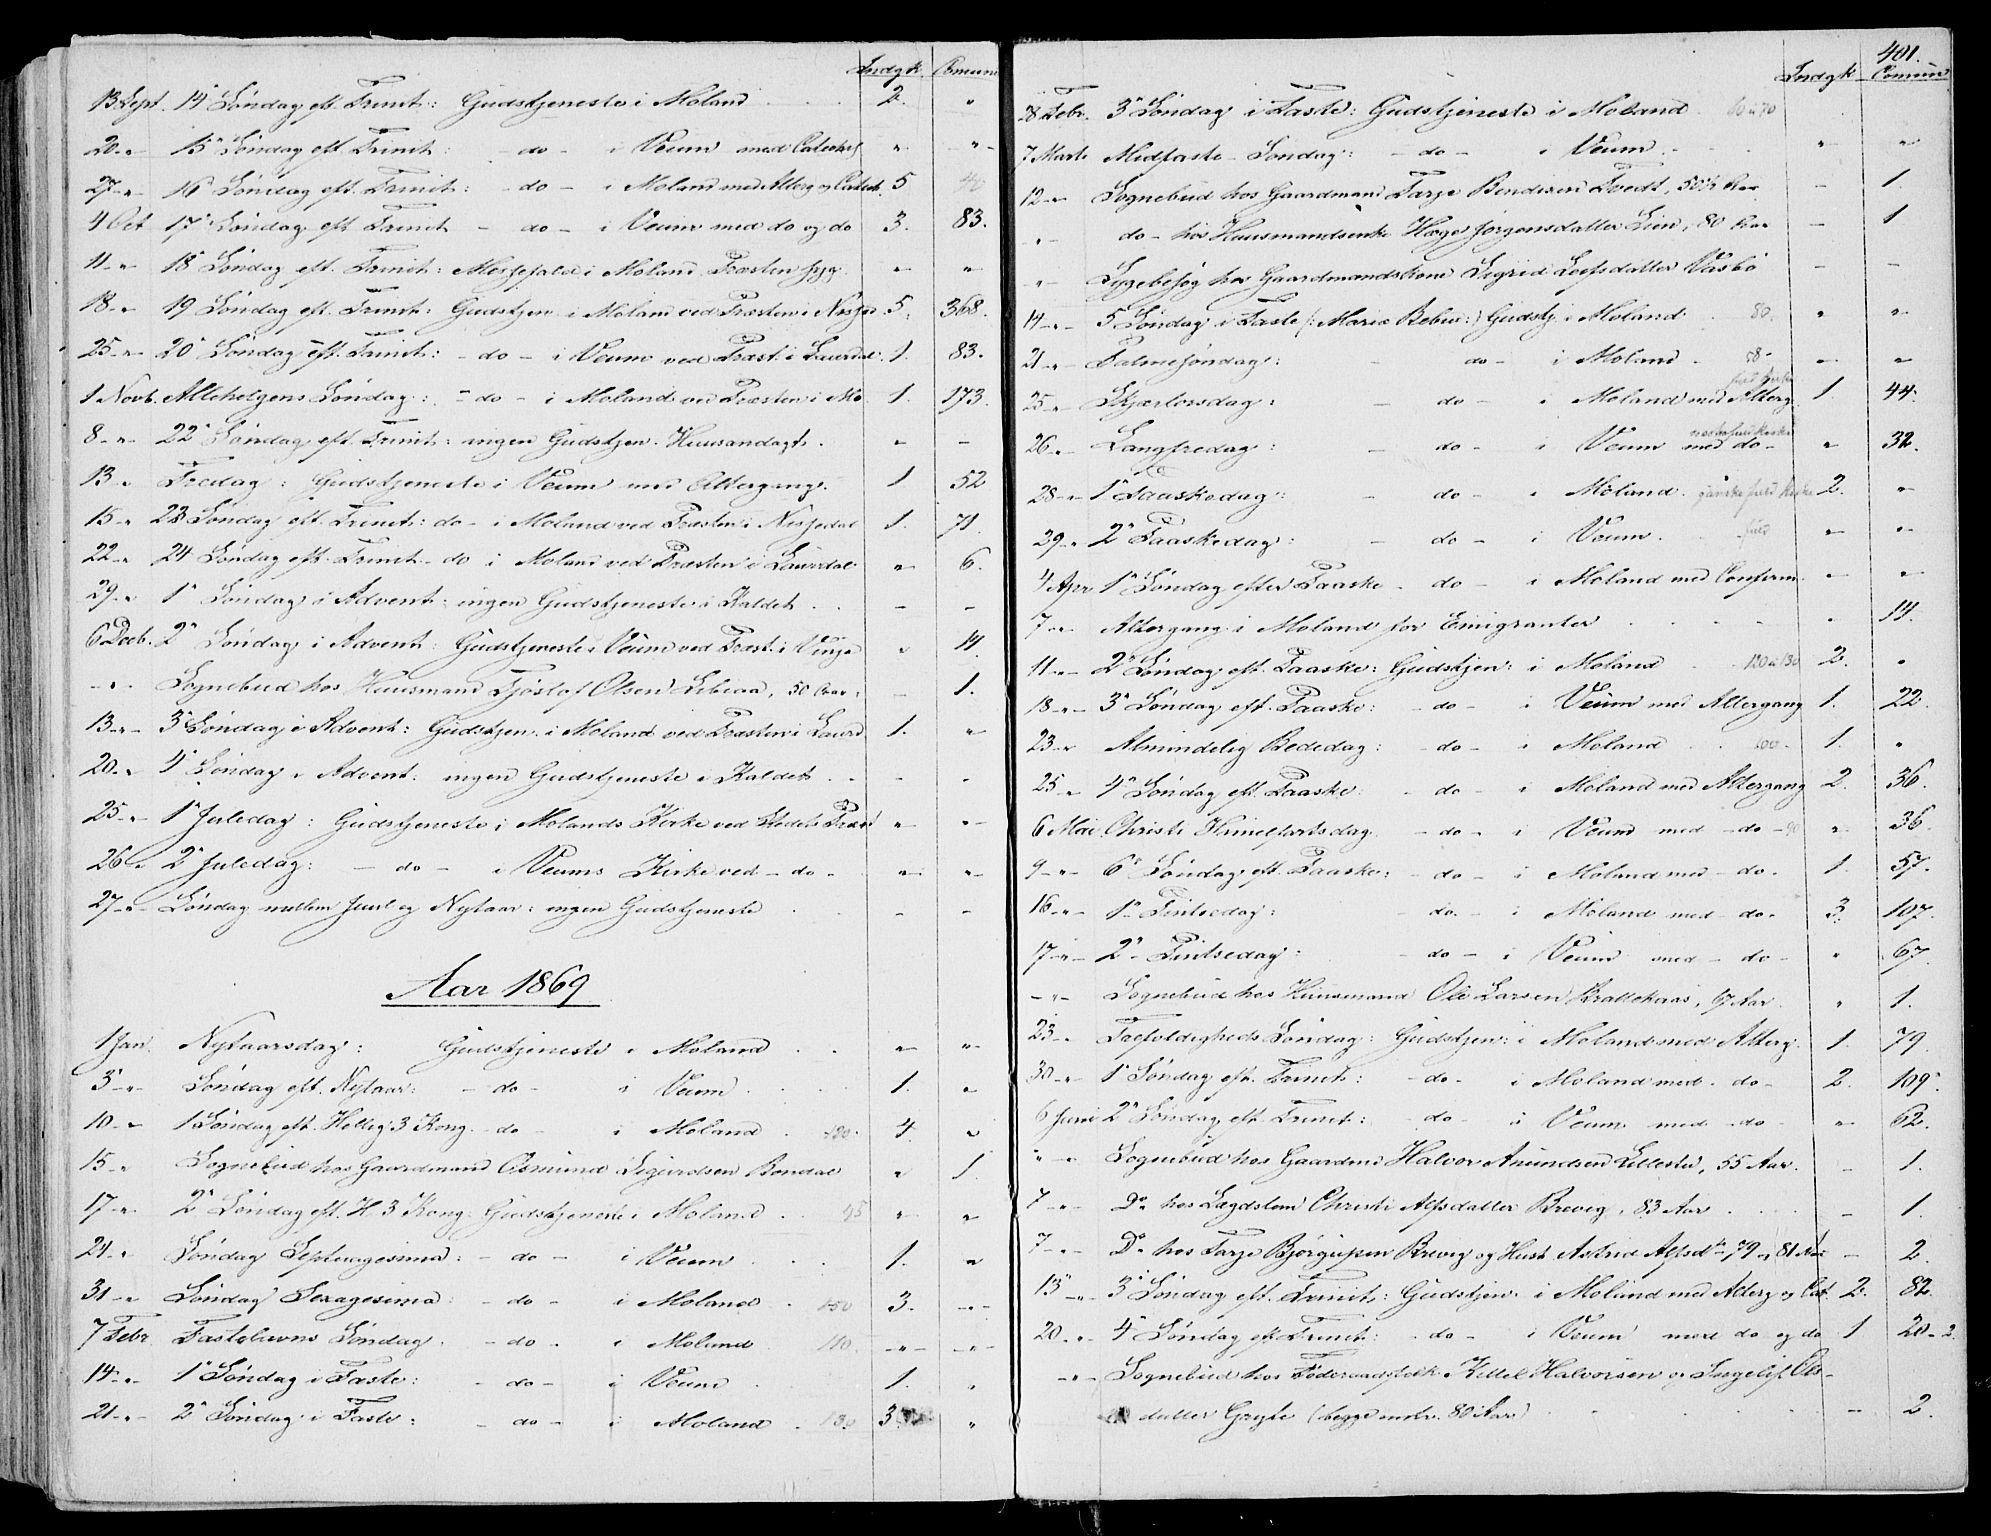 Indgk. Comun
13 Sept. 14de Søndag eft. Trinit: Gudstjeneste i Moland 2. "
20 -"- 15de Søndag eft. Trinit: - do - i Veum med Catechis " "
27 -"- 16de Søndag eft. Trinit: - do - i Moland med Alterg. og Catech. 5 40
4 Oct 17de Søndag eft. Trinit - do - i Veum med do og do 3. 83.
11 -"- 18de Søndag eft. Trinit: Messefald i Moland. Præsten syg. " "
18 -"- 19 Søndag eft. Trinit: Gudstjen. i Moland ved Præsten i Nisjed 5. 368.
25 -"- 20de Søndag eft. Trinit: - do - i Veum ved Præst. i Laurdal 1. 83.
1 Novb. Allehelgens Søndag: - do - i Moland ved Præsten i Mo 1. 173.
8 -"- 22de Søndag eft. Trinit: ingen Gudstjen. Huusandagt. - -
13 -"- Fredag: Gudstjeneste i Veum med Altergang. 1 52
15 -"- 23 Søndag eft. Trinit: do - i Moland ved Præsten i Nisjedal 1. 71.
22 -"- 24 Søndag eft. Trinit - do i Moland ved Præsten i Laurdal " 6.
29 -"- 1de Søndag i Advent: ingen Gudstjeneste i Kaldet - -
6 Decb. 2den Søndag i Advent: Gudstjeneste i Veum ved Præst. i Vinje " 14.
-"- Sognebud hos Huusmand Tjöstof Olsen Libraa, 50 Aar: - 1.
13 -"- 3de Søndag i Advent: Gudstjen. i Moland ved Præsten i Laurd. 1. "
20 -"- 4de Søndag i Advent: ingen Gudstjeneste i Kaldet - -
25 -"- 1ste Juledag: Gudstjeneste i Molands Kirke ved Stedets Præst " "
26 -"- 2den Juledag: - do - i Veums Kirke ved - do - " "
27 -"- Søndag mellem Juul og Nytaar: ingen Gudstjeneste - -
Aar 1869
1 Jan. Nytaarsdag: Gudstjeneste i Moland " "
3 -"- Søndag eft. Nytaar: - do - i Veum 1. "
10 -"- 1 Søndag eft. Hellig 3 Kong. - do - i Moland 120. 4. "
15 -"- Sognebud hos Gaardmand Osmund Sigurdsen Bondal " 1.
17 -"- 2den Søndag eft. H. 3 Kong. Gudstjeneste i Moland 95 " "
24 -"- Søndag Septuagesima: - do - i Veum 1. "
31 -"- Søndag Sexagesima: - do - i Moland 150 3. -"-
7 Febr. Fastelavns Søndag. - do - i Moland 110. -"- -"-
14 -"- 1ste Søndag i Faste: - do - i Veum 1. "
21 -"- 2den Søndag i Faste: - do - i Moland 130 3 "
401.
Indgk Comun
28 Febr. 3de Søndag i Faste: Gudstjeneste i Moland 60 a 70
7 Marts Midfaste-Søndag: - do - i Veum " "
12 -"- Sognebud hos Gaardmand Tarje Bendixen Tvedt, 50½ Aar - 1.
-"- do - hos Huusmandsenke Hæge Jørgensdatter Lien, 80 Aar - 1
-"- Sygebesøg hos Gaardmandskone Sigrid Leifsdatter Vasbö - -
14 -"- 5 Søndag i Faste (: Mariæ Bebud:) Gudstj. i Moland 80. " "
21 -"- Palmesøndag: do - i Moland - 58 - " "
25 -"- Skjærtorsdag: - do - i Moland med Alterg. 1 44.
26 -"- Langfredag: - do - i Veum med do - " 32.
28 -"- 1ste Paaskedag: - do - i Moland. ganske fuld Kirke 2. "
29 -"- 2den Paaskedag: - do - i Veum. fuld " "
4 Apr. 1ste Søndag efter Paaske - do - i Moland med Confirm. " "
7 -"- Altergang i Moland for Emigranter " 14.
11 -"- 2den Søndag eft. Paaske: Gudstjen: i Moland 120 a 130 2. "
18 -"- 3de Søndag eft. Paaske: - do - i Veum med Altergang 1. 22.
23 -"- Almindelig Bededag: - do - i Moland 100. 1. "
25 -"- 4de Søndag eft. Paaske: - do - i Moland med Altergang 2. 36.
6 Mai Christi Himelfartsdag. - do - i Veum med - do - 90 " 36.
9 -"- 6te Søndag eft. Paaske: - do - i Moland med - do - 1. 57.
16 -"- 1ste Pintsedag: - do - i Moland med - do - 3. 107.
17 -"- 2den Pintsedag: - do - i Veum med - do - " 67.
-"- Sognebud hos Huusmand Ole Larsen Brattekaas, 67 Aar. " 1.
23 -"- Trefoldigheds Søndag: Gudstjen: i Moland med Alterg. 1. 79.
30 -"- 1ste Søndag eft. Trinit: - do - i Moland med - do - 2. 109.
6 Juni 2den Søndag eft. Trinit: - do - i Veum med - do - " 62.
" -"- Sognebud hos Gaardmd Halvor Amundsen Lillestu, 55 Aar. - 1.
7 -"- Do. hos Lægdslem Christi Alfsdatter Breveg, 83 Aar - 1.
7 -"- Do. hos Tarje Björgufsen Breveg og Hust. Astrid Alfsd. 79 og 81 Aar - 2.
13 -"- 3de Søndag eft. Trinit: Gudstjen: i Moland med Alterg. og Cat. 2. 82.
20 -"- 4de Søndag eft. Trinit: - do - i Veum med do og do 1 20 - 2.
-"- Sognebud hos Föderaadsfolk Kittel Halvorsen og Ingelif Ols-
datter Gryte (begge mell. 80 Aar) - 2.